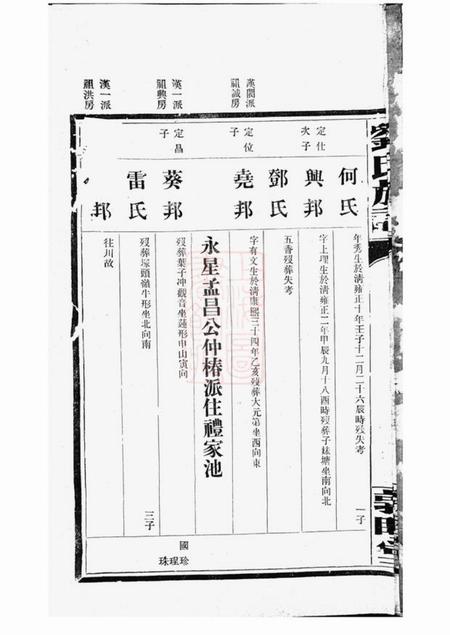 劉氏族
何氏
年秀生於清雍正十年壬子十二月二十六辰時歿失考
一子
定仕次子
興邦
字上理生於清雍正二年甲辰九月十八酉時歿葬子妹塘坐南向北
鄧氏
五香歿葬失考
漢閣派
祖誠房
定位子
堯邦
字有文生於清康熙三十四年乙亥歿葬大元第坐西向東
永星孟昌公仲椿派住禮家池
漢一派
祖興房
定昌子
葵邦
歿葬葉子冲觀音坐蓮形申山寅向
雷氏
歿葬塚頭嶺牛形坐北向南
三子
國
珍
珵
珠
漢一派
祖洪房
邦
往川故